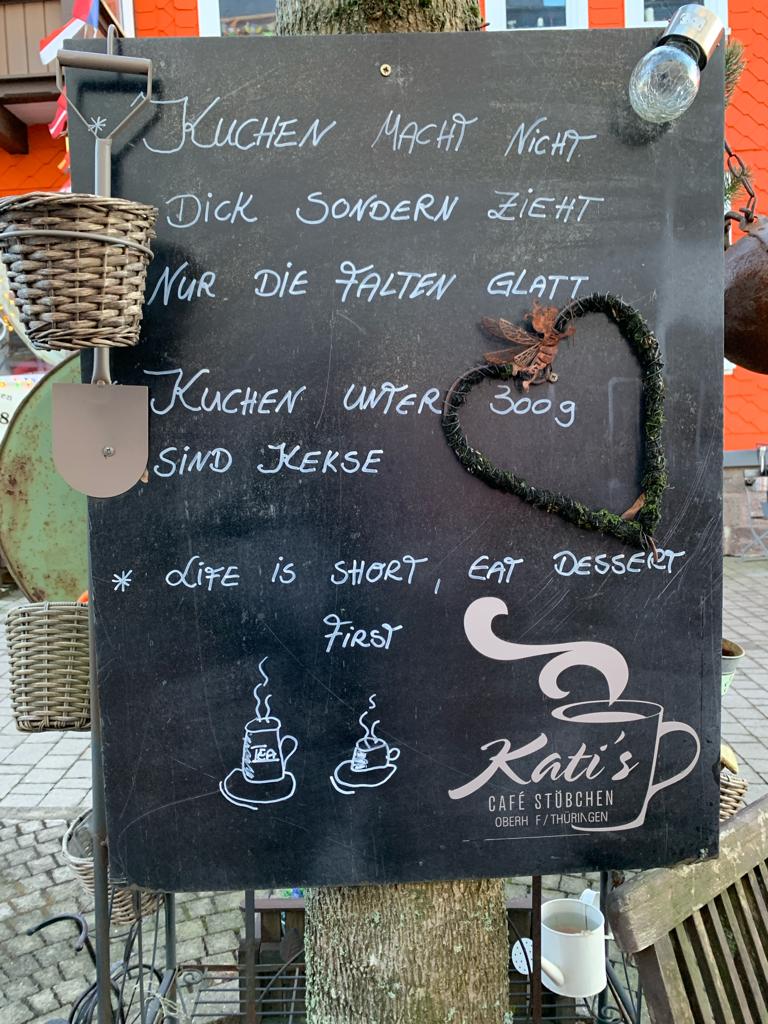 * KUCHEN MACHT NICHT
DICK SONDERN ZIEHT
NUR DIE FALTEN GLATT
KUCHEN UNTER 300g
SIND KEKSE
* LIFE IS SHORT, EAT DESSERT
FIRST
TEA
Kati's
CAFÉ STÖBCHEN
OBERH F/THÜRINGEN